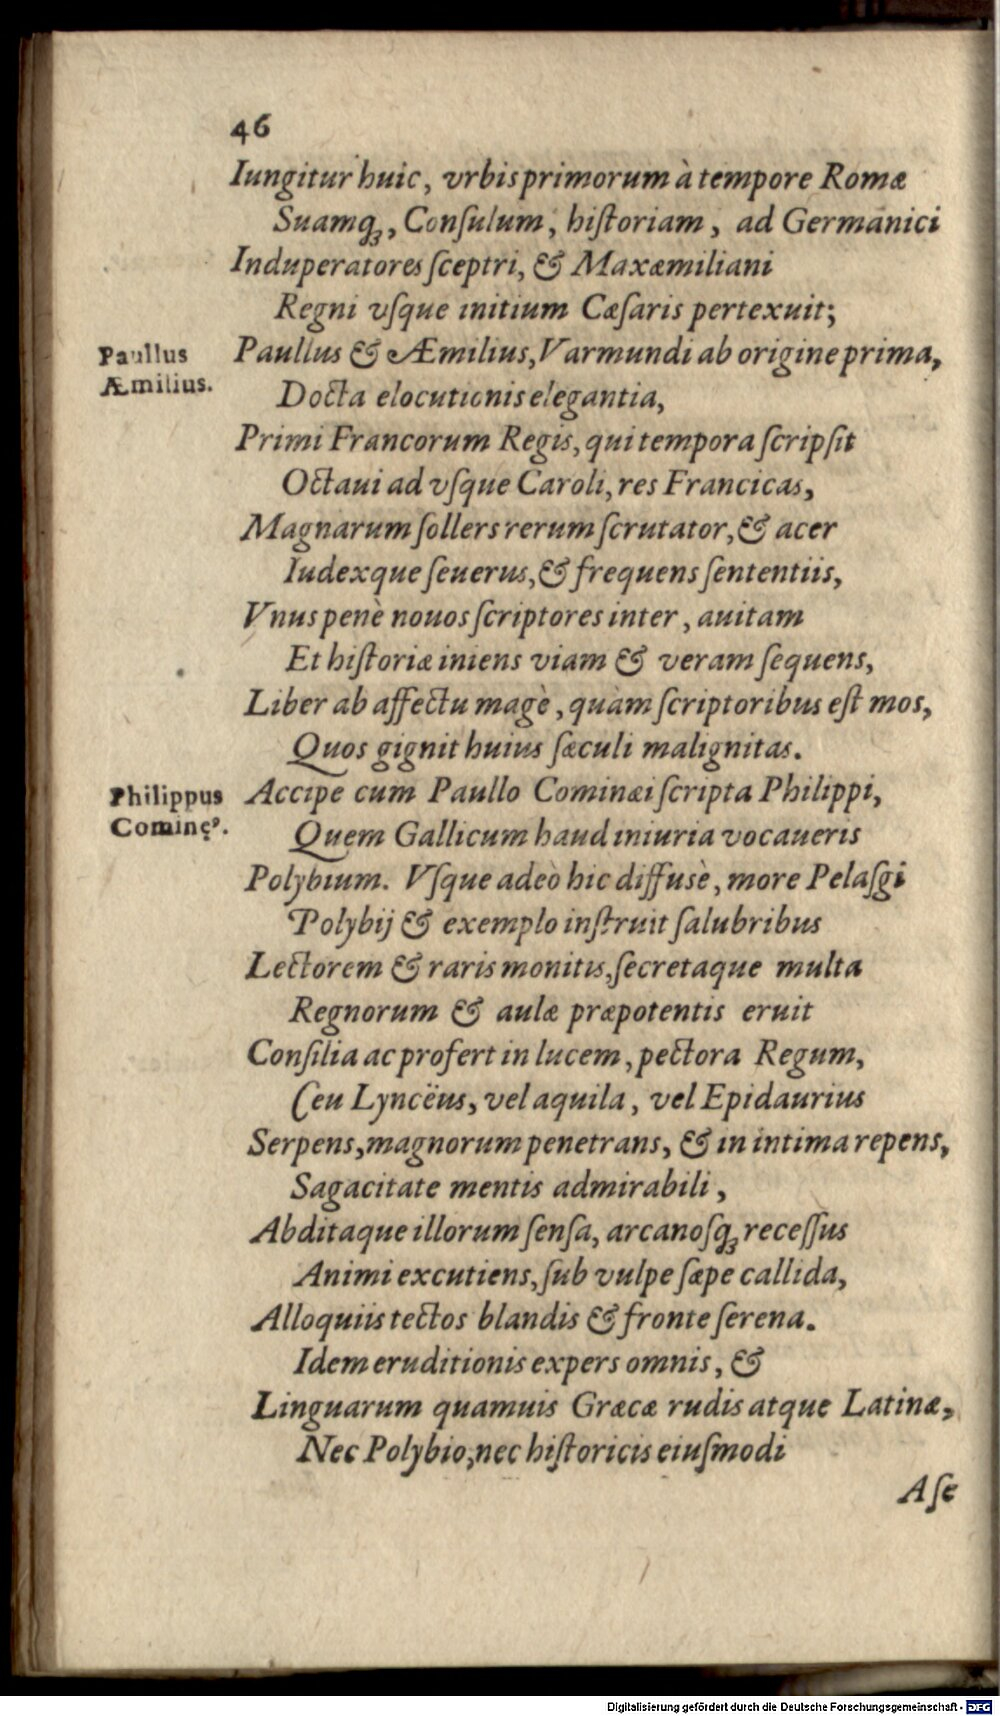 46
Iungitur huic, vrbis primorum à tempore Romæ
Suamq́ꝫ, Conſulum, hiſtoriam, ad Germanici
Induperatores ſceptri, & Maxæmiliani
Regni vſque initium Cæſaris pertexuit;
Paullus
Æmilius.
Paullus & Æmilius, Varmundi ab origine prima,
Docta elocutionis elegantia,
Primi Francorum Regis, qui tempora ſcripſit
Octaui ad vſque Caroli, res Francicas,
Magnarum ſollers rerum ſcrutator, & acer
Iudexque ſeuerus, & frequens ſententiis,
Vnus penè nouos ſcriptores inter, auitam
Et hiſtoriæ iniens viam & veram ſequens,
Liber ab affectu magè, quàm ſcriptoribus eſt mos,
Quos gignit huius ſæculi malignitas.
Philippus
Cominęꝰ.
Accipe cum Paullo Cominæi ſcripta Philippi,
Quem Gallicum haud iniuria vocaueris
Polybium. Vſque adeò hic diffuſè, more Pelaſgi
Polybij & exemplo inſtruit ſalubribus
Lectorem & raris monitis, ſecretaque multa
Regnorum & aulæ præpotentis eruit
Conſilia ac profert in lucem, pectora Regum,
Ceu Lyncëus, vel aquila, vel Epidaurius
Serpens, magnorum penetrans, & in intima repens,
Sagacitate mentis admirabili,
Abditaque illorum ſenſa, arcanoſq́ꝫ receſſus
Animi excutiens, ſub vulpe ſæpe callida,
Alloquiis tectos blandis & fronte ſerena.
Idem eruditionis expers omnis, &
Linguarum quamuis Græcæ rudis atque Latinæ,
Nec Polybio, nec hiſtoricis eiuſmodi
A ſe
Digitalisierung gefördert durch die Deutsche Forschungsgemeinschaft - DFG